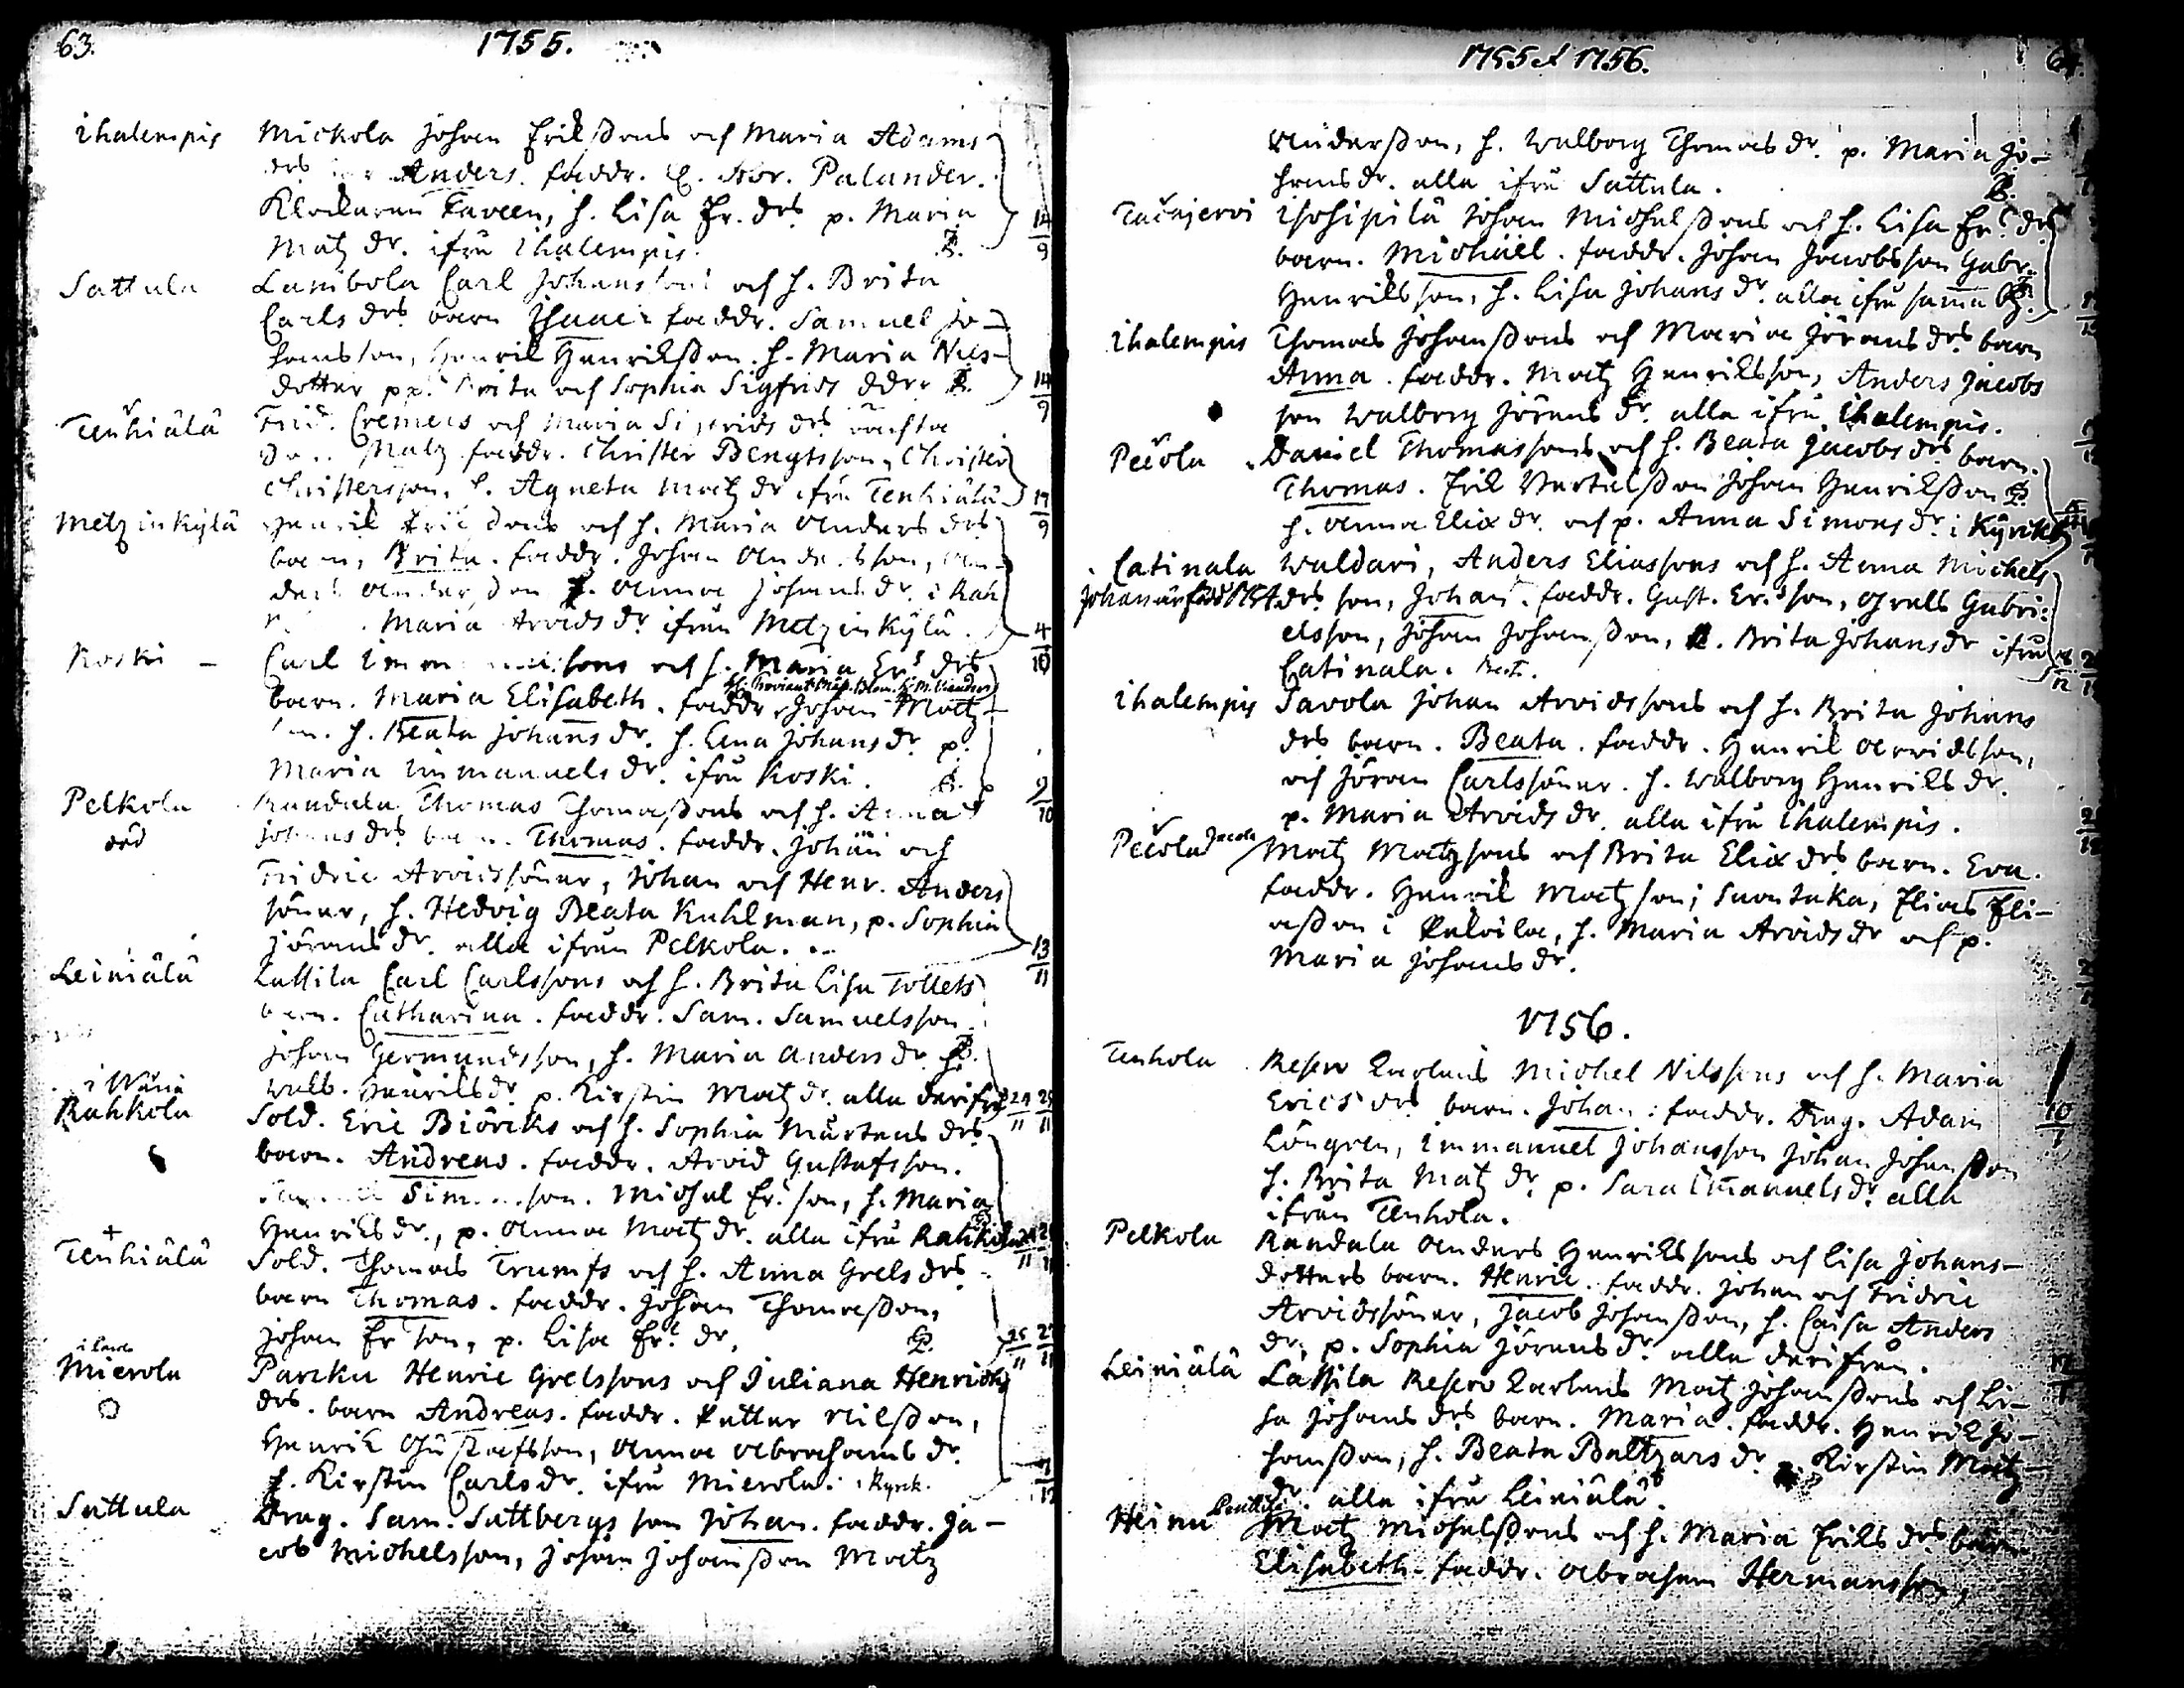 63.
1755.
Ihalempis Mickola Johan Erikssons och Maria Adams
drs Anders. faddr. E. Palander.
Klockaren Faveen, h. Lisa Er. drs p. Maria
Matz dr. ifrån Ihalempis. 14/9
Sattula Lanibola Carl Johanssons och h. Brita
Carls drs barn Isaac. faddr. Samuel Jo-
hansson, Henrik Henriksson. h. Maria Nils-
dotter pp. Brita och Sophia Sigfrids ddr. 14/9
Tenhiälä Frid. Cremers och Maria Sigfrids drs oächta
Matz faddr. Christer Bengtsson, Christer
Christersson, h. Agneta Matz dr ifrån Tenhiälä 14/9
Metzinkylä Henrik och h. Maria Anders drs
barn, Brita. faddr. Johan Andersson, An-
ders Andersson h. Anna Johans dr. i Rah
Maria Arvids dr ifrån Metzinkylä. 4/10
Koski – Carl Immanuelssons och h. Maria Ers drs
barn. Maria Elisabeth. faddr. Johan Matz-
son. h. Beata Johans dr. h. Lena Johans dr. p.
Maria Immanuels dr. ifrån Koski. 9/10
Pelkola Randala Thomas Thomassons och h. Anna
död Johans drs barn. Thomas. faddr. Johan och
Fridric Arvidssöner, Johan och Henr. Anders
söner, h. Hedvig Beata Kuhlman, p. Sophia
Jörans dr. alla ifrån Pelkola. 13/11
Leiniälä Lassila Carl Carlssons och h. Brita Lisa Tollets
barn. Catharina. faddr. Sam. Samuelsson.
Johan Germundsson, h. Maria Anders dr h.
Walb. Henriks dr. p. Kirstin Matz dr. alla derifrån
Rahkola Sold. Eric Biörcks och h. Sophia Mårtens drs
barn. Andreas. faddr. Arvid Gustafsson.
Simonsson. Michel Er. son, h. Maria
Henriks dr., p. Anna Matz dr. alla ifrån Rahkola
+
Tenhiälä Sold. Thomas Trumfs och h. Anna Grels drs
barn Thomas. faddr. Johan Thomasson,
Johan Er son, p. Lisa Ers dr.
Mierola Parcku Henric Grelssons och Juliana Henrichs
drs. barn Andreas. faddr. Petter Nilsson,
Henrik Gustafsson, Anna Abrahams dr.
h. Kirstin Carls dr. ifrån Mierola i Kyrck.
Sattula Drag. Sam. Sattbergs son Johan. faddr. Ja-
cob Michelsson, Johan Johansson Matz
1755 et 1756.
64.
Andersson, h. Walborg Thomas dr. p. Maria Jo-
hans dr. alla ifrån Sattula.
Isohipilä Johan Michelssons och h. Lisa Ers drs
barn. Michäel. faddr. Johan Jacobsson Gabr.
Henriksson, h. Lisa Johans dr. alla ifrån samma
Ihalempis Thomas Johanssons och Maria Jörans drs barn
Anna. faddr. Matz Henriksson, Anders Jacobs
son Walborg Jörans dr. alla ifrån Ihalempis.
Daniel Thomassons och h. Beata Jacobs drs barn.
Thomas. Erik Bertelsson Johan Henriksson
h. Anna Eliæ dr. och p. Anna Simons dr. i Kyrck
Catinala Waldari, Anders Eliassons och h. Anna Michels
Johan är född drs son, Johan. faddr. Gust. Ers son, Grells Gabri-
elsson, Johan Johansson, h. Brita Johans dr ifrån
Catinala.
Ihalempis Savola Johan Arvidssons och h. Brita Johans
drs barn. Beata. faddr. Henrik Arvidsson,
och Jöran Carlssöner. h. Walborg Henriks dr.
p. Maria Arvids dr. alla ifrån Ihalempis.
Matz Matzsons och Brita Eliæ drs barn. Eva.
faddr. Henrik Matzson, Suontaka, Elias Eli-
asson i h. Maria Arvids dr och p.
Maria Johans dr.
1756.
Tenhola Reserv Karlens Michel Nilssons och h. Maria
Erics drs barn. Johan. faddr. Drag. Adam
Löngren, Immanuel Johansson Johan Johansson
h. Brita Matz dr. p. Sara Emanuels dr. alla
ifrån Tenhola.
Pelkola Randala Anders Henrikssons och Lisa Johans-
dotters barn. Henric. faddr. Johan och Fridric
Arvidssöner, Jacob Johansson, h. Caisa Anders
dr, p. Sophia Jörans dr. alla derifrån.
Leiniälä Lassila Reserv Karlens Matz Johanssons och Li-
sa Johans drs barn. Maria. faddr. Henrik Jo-
hansson, h. Beata Baltzars dr. p. Kirstin Matz-
dr. alla ifrån Leiniälä.
Heinu Matz Michelssons och h. Maria Eriks drs barn
Elisabeth. faddr. Abraham Hermansson,